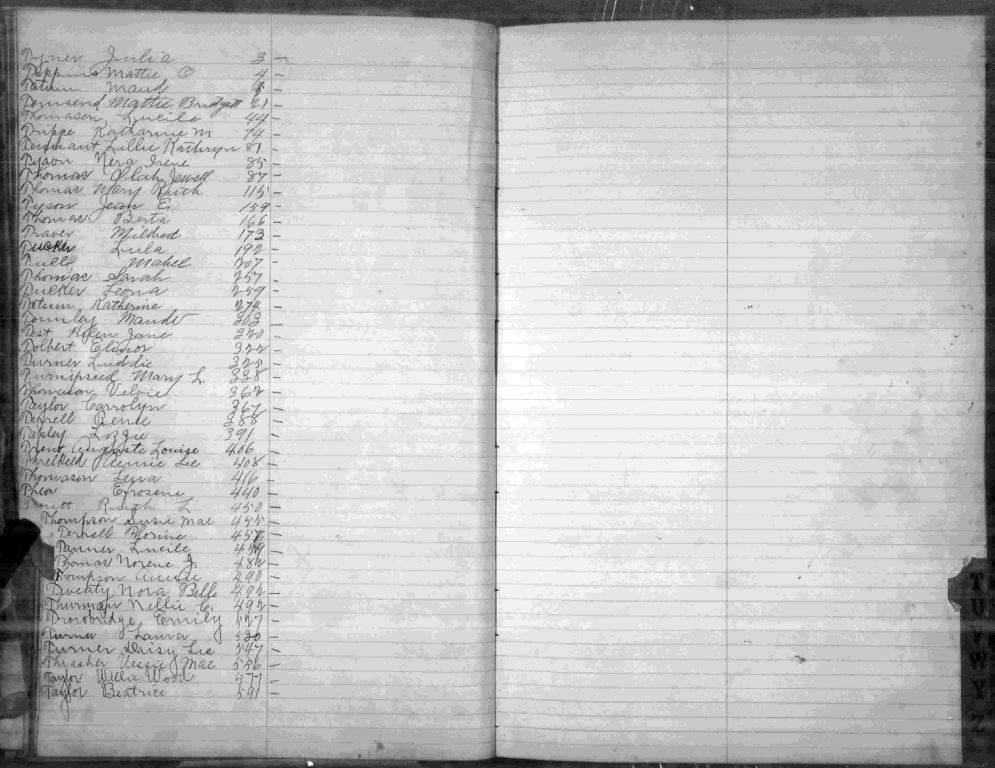 Tyner Julia 3 -
Mattie O 4 -
Tatum Maud
Townsend Mattie Bridgett 21 -
Thomason Lucile 44 -
Trippe Katharine M 74 -
Tennant Lillie Kathryn 81 -
Tyson Irene 85 -
Thomas Olah Jewell 87 -
Thomas Mary Ruth 115 -
Tyson Jean E. 159 -
Thomas Berta 166 -
Traver Mildred 173 -
Tucker Lula 192 -
Tulle Mabel 207 -
Thomas Sarah 257 -
Tucker Leona 259 -
Tatum Katherine 274 -
Townley Maude 303 -
Helen Jane 320 -
Tolbert Elinor 322 -
Turner Luddie 325 -
Turnipseed Mary L. 338 -
Thomason Velvie 362 -
Taylor Carrolyn 367 -
Terrell Renee 388 -
Tapley Lizzie 391 -
Trent Auguste Louise 406 -
Threlkeld Annie Lee 408 -
Thomason Lena 416 -
Efrosene 440 -
Ruth L 450 -
Thompson Susie Mae 455 -
Terrell Florine 457 -
Tanner Lucile 459 -
Thomas Norene J. 482 -
Tompson 490 -
Twenty Nora Belle 492 -
Thurman Nellie C. 492 -
Trowbridge Emily 527 -
Turner Laura 530 -
Turner Daisy Lee 547 -
Thrasher Vessie Mae 556 -
Taylor Willie Wood 577 -
Taylor Beatrice 591 -
T
U
V
W
Y
Z